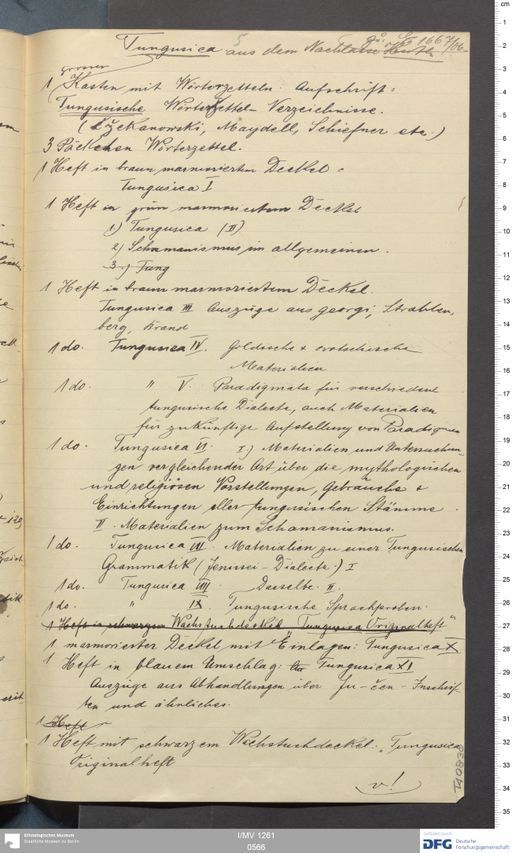 Tungusica aus dem Nachlasse Huth
zu E 1667/06
grosser
1 Kasten mit Wörterzetteln: Aufschrift:
Tungusische Wörterzettel-Verzeichnisse.
(Czekanowski, Maydell, Schiefner etc.)
3 Päckchen Wörterzettel.
1 Heft in braun marmoriertem Deckel:
Tungusica I
1 Heft in grün marmoriertem Deckel
1) Tungusica (II)
2) Schamanismus im allgemeinen.
3.) Tung
1 Heft in braun marmoriertem Deckel.
Tungusica III Auszüge aus Georgi, Strahlen
berg, Brand
1 do. Tungusica IV. Goldische & orotschische
Materialien
1 do. " V. Paradigmata für verschiedene
tungusische Dialecte, auch Materialien
für zukünftige Aufstellung von Paradigmen
1 do. Tungusica VI. I.) Materialien und Untersuchun-
gen vergleichender Art über die mythologischen
und religiösen Vorstellungen, Gebräuche &
Einrichtungen aller tungusischen Stämme.
II. Materialien zum Schamanismus.
1 do. Tungusica VII. Materialien zu einer Tungusischen
Grammatik (Jenissei-Dialecte) I
1 do. Tungusica VIII. Dasselbe II.
1 do. " IX. Tungusische Sprachproben.
1 Heft in schwarzem Wachstuchdeckel "Tungusica Originalheft"
1 marmorierter Deckel mit Einlagen: Tungusica X
1 Heft in blauem Umschlag: Tungusica XI
Auszüge aus Abhandlungen über Ju-čen-Inschrif-
ten und ähnliches.
1 Heft
1 Heft mit schwarzem Wachstuchdeckel: "Tungusica
Originalheft
v!
Ethnologisches Museum
Staatliche Museen zu Berlin
I/MV 1261
0566
gefördert durch
DFG Deutsche
Forschungsgemeinschaft